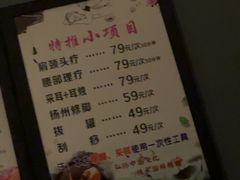 特推小项目
肩颈头疗 …… 79元/次30分钟
腰部理疗 …… 79元/次30分钟
采耳+耳烛 …… 79元/次
扬州修脚 …… 59元/次
拔罐 …… 49元/次
刮痧 …… 49元/次
采耳使用一次性工具